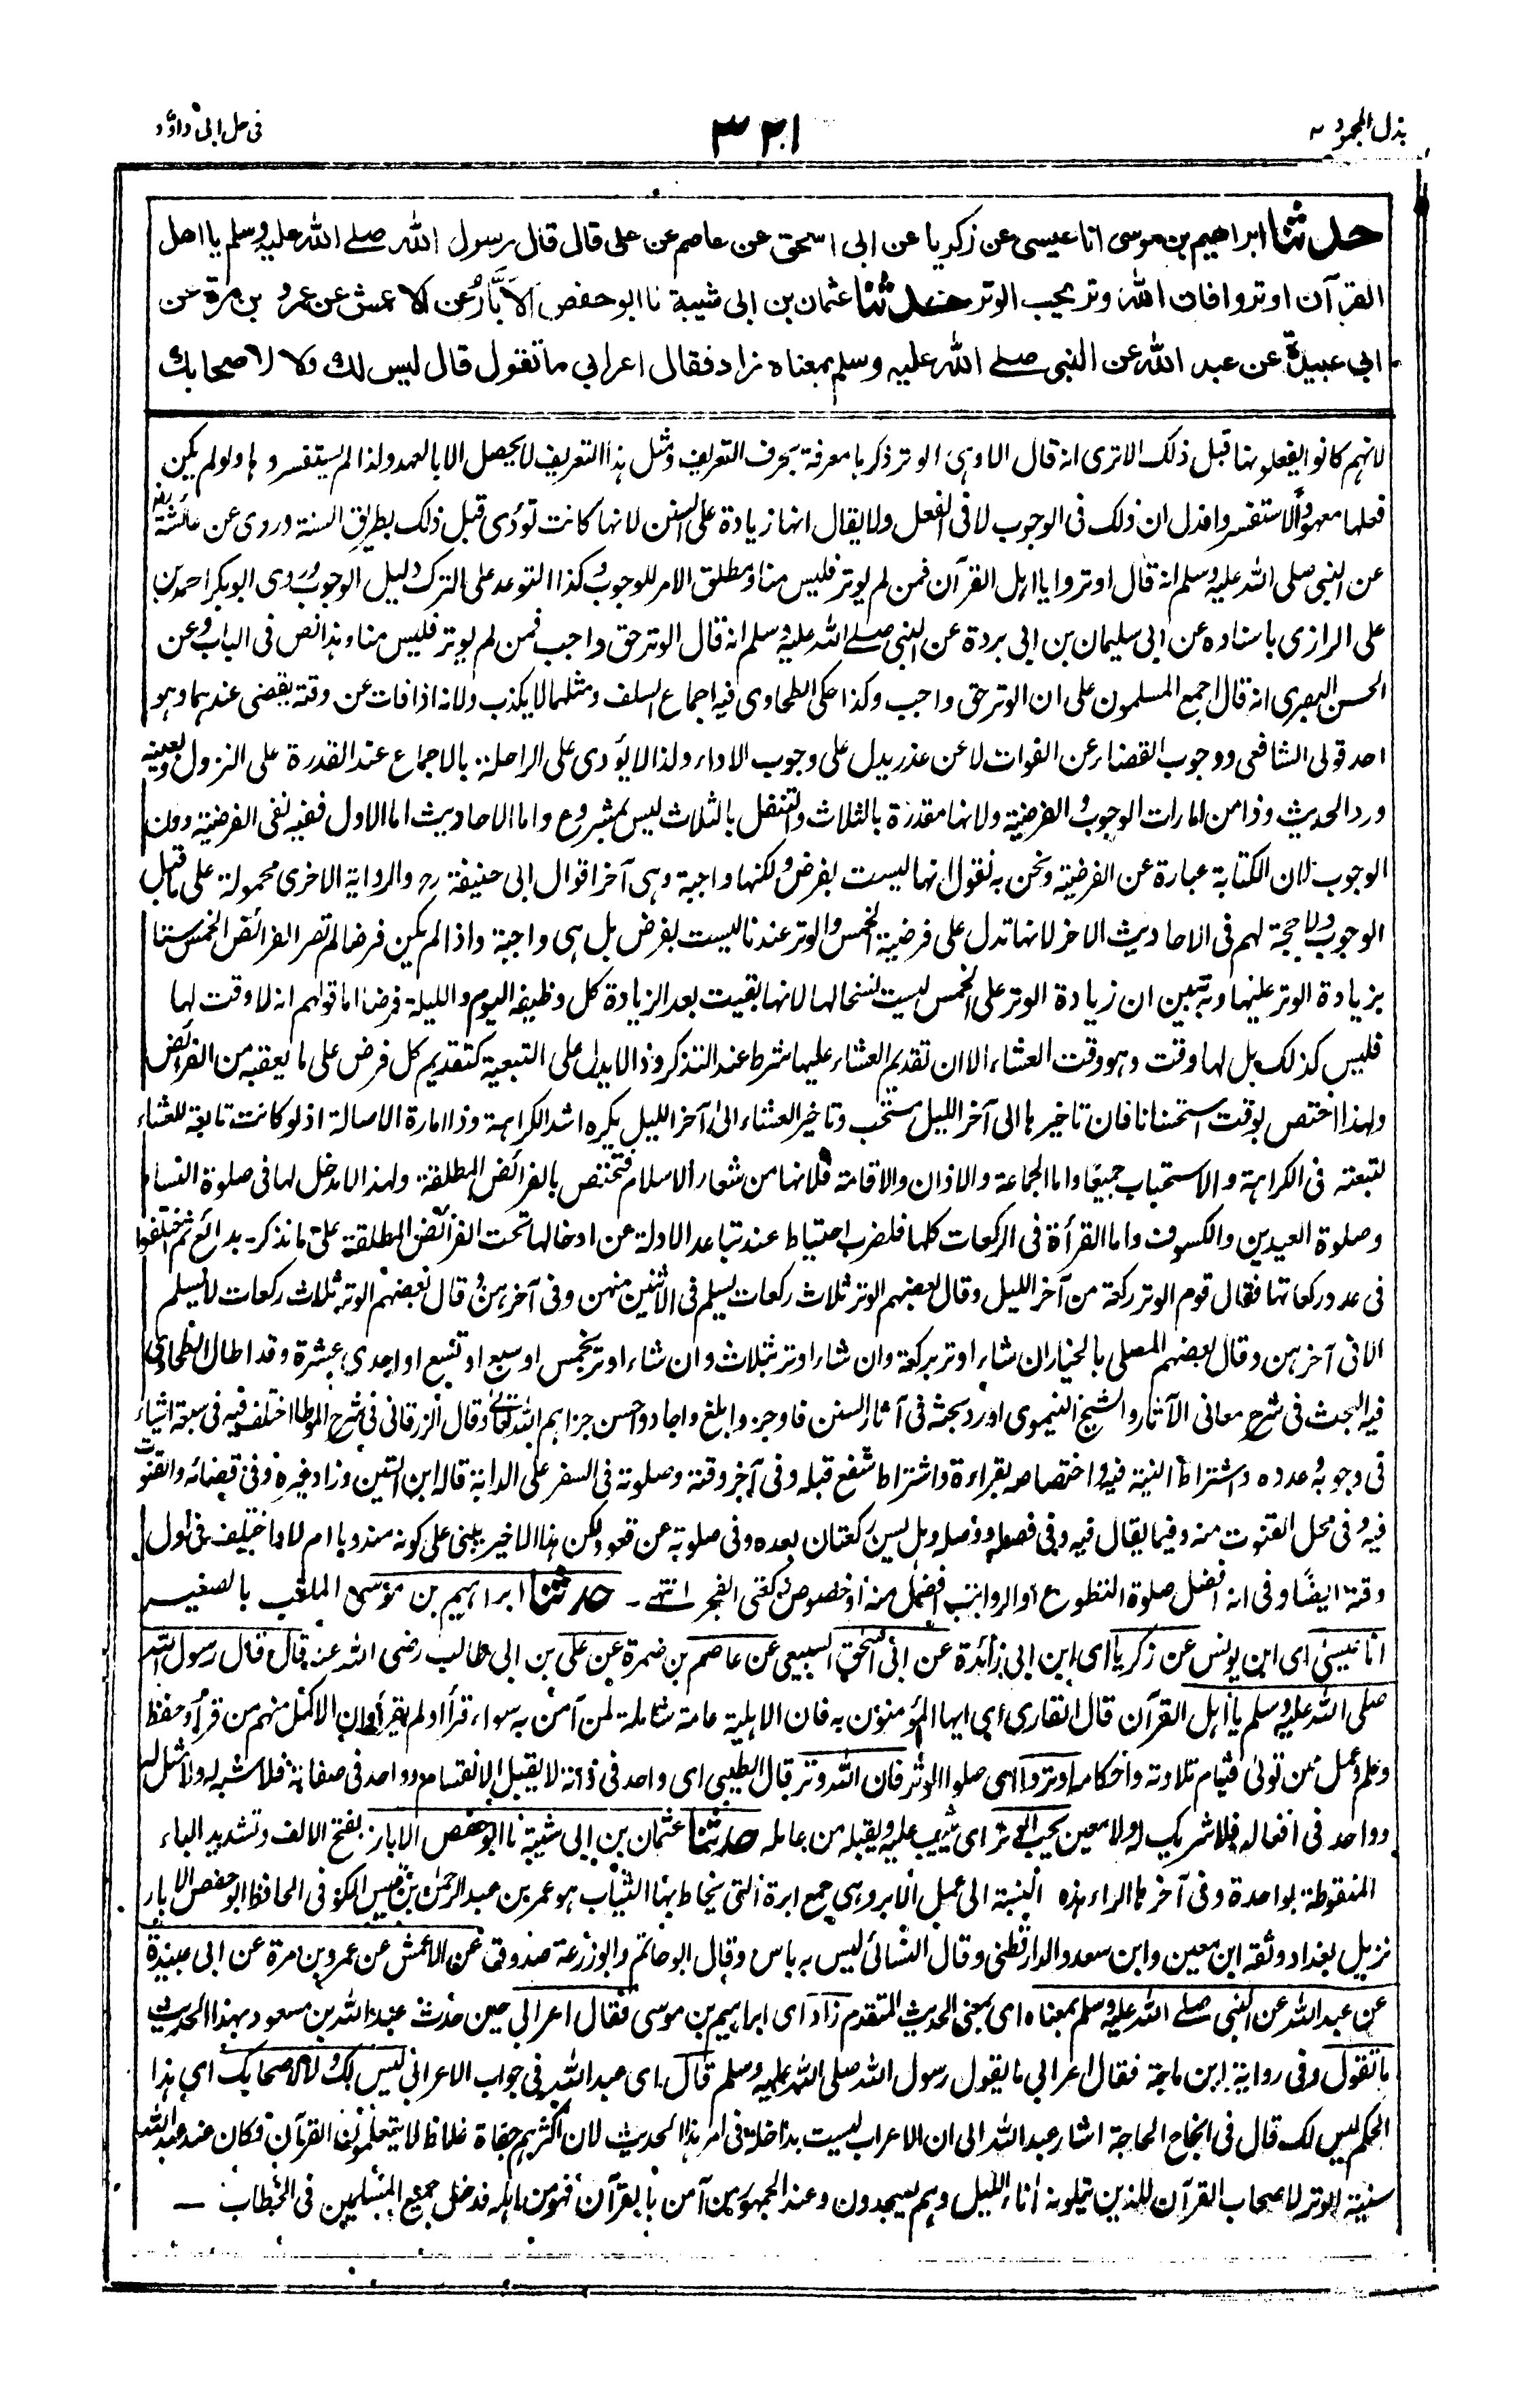 بذل المجهود
٣٢١
فى حل ابى داؤد
حدثنا ابراهيم بن موسى انا عيسى عن زكريا عن ابى اسحق عن عاصم عن على قال قال رسول الله صلے الله عليه وسلم يا اهل
القرآن اوتروا فان الله وتر يحب الوتر حدثنا عثمان بن ابى شيبة نا ابو حفص الاَبَّارُ عن الاعمش عن عمرو بن مرة عن
ابى عبيدة عن عبد الله عن النبى صلے الله عليه وسلم بمعناه زاد فقال اعرابي ما تقول قال ليس لك ولا لاصحابك
لانهم كانوا يفعلونها قبل ذلك الاترى انه قال الا وهى الوتر ذكرها معرفة بحرف التعريف ومثل هذا التعريف لا يحصل الا بالعهد ولذا لم يستفسروها ولو لم يكن
فعلها معهودا لاستفسروا فدل ان ذلك فى الوجوب لا فى الفعل ولا يقال انها زيادة على السنن لانها كانت تؤدى قبل ذلك بطريق السنة وروى عن عائشة رضـ
عن النبى صلى الله عليه وسلم انه قال اوتروا يا اهل القرآن فمن لم يوتر فليس منا ومطلق الامر للوجوب وكذا التوعد على الترك دليل الوجوب وروى ابو بكر احمد بن
على الرازى باسناده عن ابى سليمان بن ابى بردة عن النبى صلے الله عليه وسلم انه قال الوتر حق واجب فمن لم يوتر فليس منا وهذا نص فى الباب وعن
الحسن البصرى انه قال اجمع المسلمون على ان الوتر حق واجب وكذا حكى الطحاوى فيه اجماع السلف ومثلهما لا يكذب ولانه اذا فات عن وقته يقضى عندهما وهو
احد قولى الشافعى ووجوب القضاء عن الفوات لا عن عذر يدل على وجوب الاداء ولذا لا يؤدى على الراحلة بالاجماع عند القدرة على النزول وبعينه
ورد الحديث وذا من امارات الوجوب والفرضية ولانها مقدرة بالثلاث والتنفل بالثلاث ليس بمشروع واما الاحاديث اما الاول ففيه نفى الفرضية دون
الوجوب لان الكتابة عبارة عن الفرضية ونحن به نقول انها ليست بفرض ولكنها واجبة وهى آخر اقوال ابى حنيفة رح والرواية الاخرى محمولة على ما قبل
الوجوب ولا حجة لهم فى الاحاديث الاخر لانها تدل على فرضية الخمس والوتر عندنا ليست بفرض بل هى واجبة واذا لم يكن فرضا لم تصر الفرائض الخمس ستا
بزيادة الوتر عليها وبه تبين ان زيادة الوتر على الخمس ليست نسخا لها لانها بقيت بعد الزيادة كل وظيفة اليوم والليلة فرضا اما قولهم انه لا وقت لها
فليس كذلك بل لها وقت وهو وقت العشاء الا ان تقديم العشاء عليها شرط عند التذكر وذا لا يدل على التبعية كتقديم كل فرض على ما يعقبه من الفرائض
ولهذا اختص بوقت استحسانا فان تاخيرها الى آخر الليل مستحب وتاخير العشاء الى آخر الليل يكره اشد الكراهة وذا امارة الاصالة اذ لو كانت تابعة للعشاء
لتبعته فى الكراهة والاستحباب جميعا واما الجماعة والاذان والاقامة فلانها من شعار الاسلام فتختص بالفرائض المطلقة ولهذا لا مدخل لها فى صلوة النساء
وصلوة العيدين والكسوف واما القرأة فى الركعات كلها فلضرب احتياط عند تباعد الادلة عن ادخالها تحت الفرائض المطلقة على ما نذكر۔ بدائع ثم اختلفوا
فى عدد ركعاتها فقال قوم الوتر ركعة من آخر الليل وقال بعضهم الوتر ثلاث ركعات يسلم فى الاثنين منهن وفى آخرهن وقال بعضهم الوتر ثلاث ركعات لا يسلم
الا فى آخرهن وقال بعضهم المصلى بالخيار ان شاء اوتر بركعة وان شاء اوتر بثلاث وان شاء اوتر بخمس او سبع او تسع او احدى عشرة وقد اطال الطحاوى
فيه البحث فى شرح معانى الآثار والشيخ النيموى اورد بحثه فى آثار السنن فاوجز وابلغ واجاد واحسن جزاهم الله تعالى وقال الزرقانى فى شرح الموطا اختلف فيه فى سبعة اشياء
فى وجوبه وعدده واشتراط النية فيه واختصاصه بقراءة واشتراط شفع قبله وفى آخر وقته وصلوته فى السفر على الدابة قاله ابن التين وزاد غيره وفى قضائه والقنوت
فيه وفى محل القنوت منه وفيما يقال فيه وفى فصله ووصله وهل يسن ركعتان بعده وفى صلوته عن قعود لكن هذا الاخير يبنى على كونه مندوبا ام لا واختلف فى اول
وقته ايضًا وفى انه افضل صلوة التطوع او الرواتب افضل منه او خصوص ركعتى الفجر انتهے۔ حدثنا ابراهيم بن موسى الملقب بالصغير
انا عيسى اى ابن يونس عن زكريا اى ابن ابى زائدة عن ابى اسحق السبيعى عن عاصم بن ضمرة عن على بن ابى طالب رضى الله عنه قال قال رسول الله
صلى الله عليه وسلم يا اهل القرآن قال القارى اى ايها المؤمنون به فان الاهلية عامة شاملة لمن آمن به سواء قرأ او لم يقرأ وان الاكمل منهم من قرأ وحفظ
وعلم وعمل ممن تولى قيام تلاوته واحكامه اوتروا اى صلوا الوتر فان الله وتر قال الطيبى اى واحد فى ذاته لا يقبل الانقسام وواحد فى صفاته فلا شبه له ولا مثل له
وواحد فى افعاله فلا شريك له ولا معين يحب الوتر اى يثيب عليه ويقبله من عامله حدثنا عثمان بن ابى شيبة نا ابو حفص الابار بفتح الالف وتشديد الباء
المنقوطة بواحدة وفى آخرها الراء هذه النسبة الى عمل الابر وهى جمع ابرة التى يخاط بها الثياب هو عمر بن عبد الرحمن بن قيس الكوفى الحافظ ابو حفص الابار
نزيل بغداد وثقه ابن معين وابن سعد والدارقطنى وقال النسائى ليس به باس وقال ابو حاتم وابو زرعة صدوق عن الاعمش عن عمرو بن مرة عن ابى عبيدة
عن عبد الله عن النبى صلے الله عليه وسلم بمعناه اى بمعنى الحديث المتقدم زاد اى ابراهيم بن موسى فقال اعرابى حين حدث عبد الله بن مسعود بهذا الحديث
ما تقول وفى رواية ابن ماجة فقال اعرابى ما يقول رسول الله صلى الله عليه وسلم قال اى عبد الله فى جواب الاعرابى ليس لك ولا لاصحابك اى هذا
الحكم ليس لك قال فى انجاح الحاجة اشار عبد الله الى ان الاعراب ليست بداخلة فى امر هذا الحديث لان اكثرهم جفاة غلاظ لا يتعلمون القرآن فكان عند عبد الله
سنية الوتر لاصحاب القرآن للذين يتلونه أناء الليل وهم يسجدون وعند الجمهور من آمن بالقرآن فهو من اهله فدخل جميع المسلمين فى الخطاب ـــ